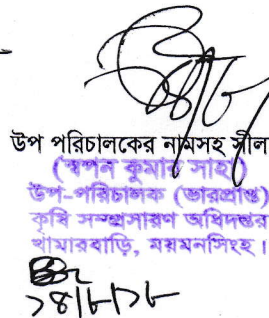 উপ পরিচালকের নামসহ সীল
(স্বপন কুমার সাহা)
উপ-পরিচালক (ভারপ্রাপ্ত)
কৃষি সম্প্রসারণ অধিদপ্তর
খামারবাড়ি, ময়মনসিংহ।
১৪/৮/১৮